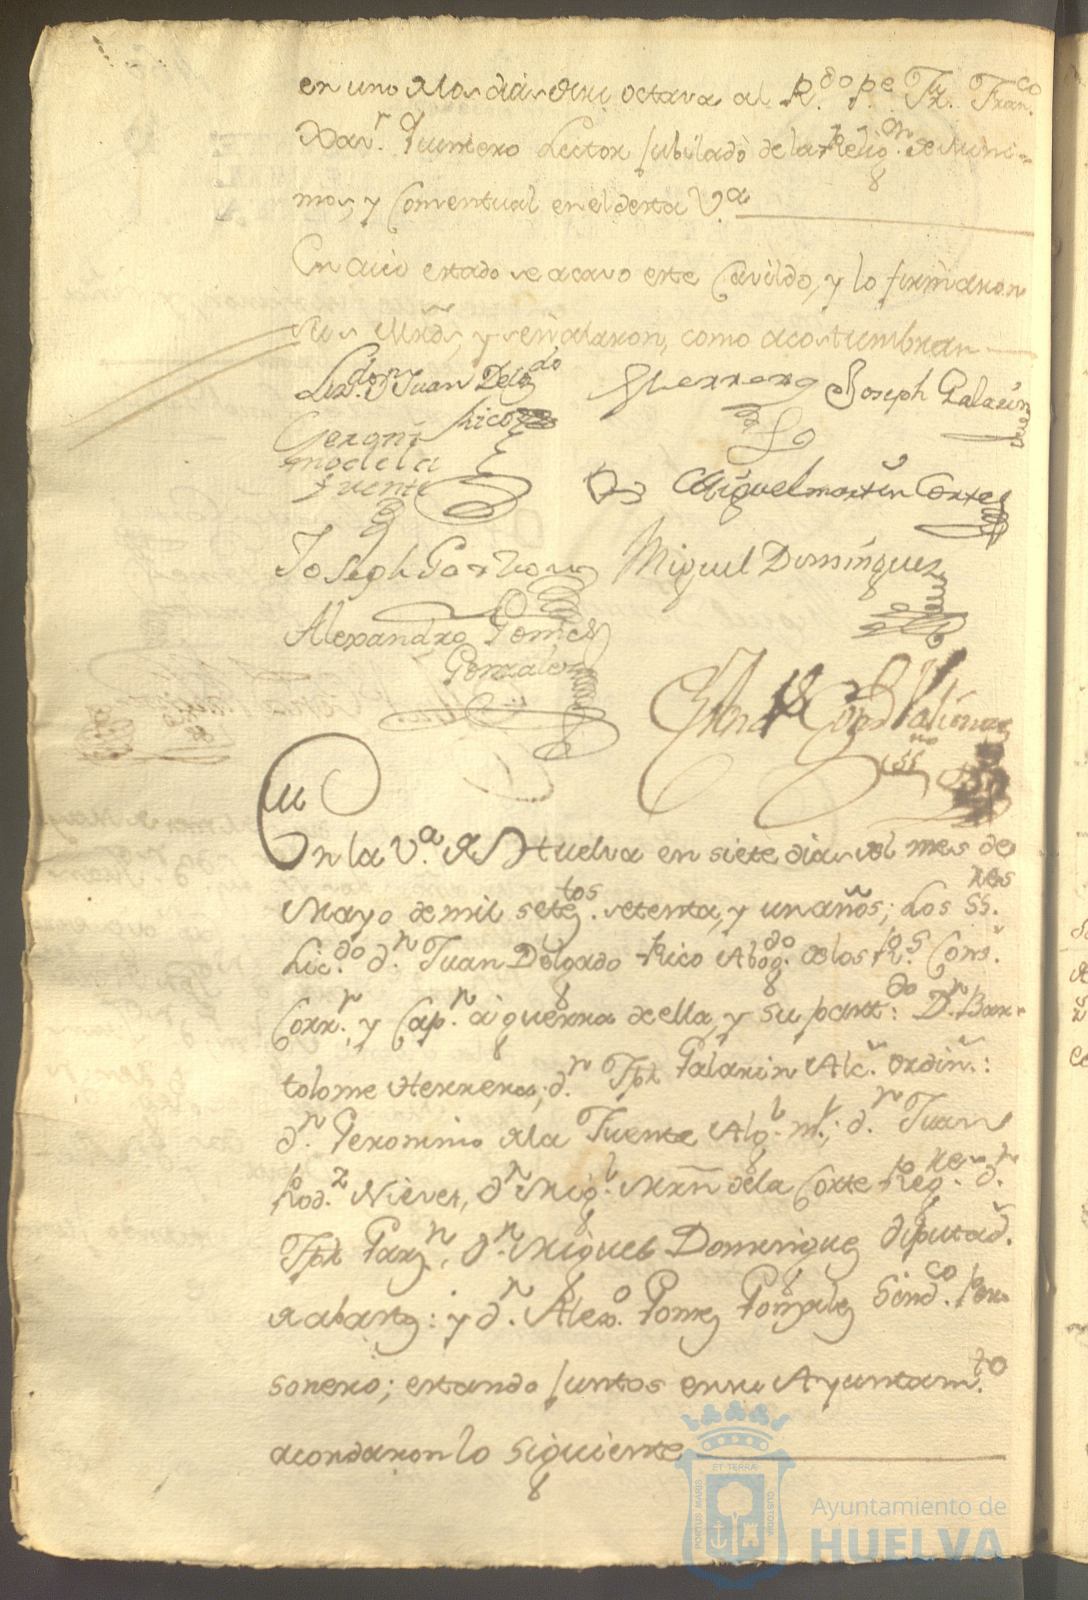 en uno de los dias de su octava al R.do P.e Fr. Fran.co
Xav.r Quintero Lector Jubilado de la Relig.on de Mini-
mos, y Conventual en el de esta V.a
En cuio estado se acavo este Cavildo, y lo firmaron
sus Mrds, y señalaron, como acostumbran
Lizd.o don Juan Delgdo Rico
Herrero
Joseph Galarin
Geroni
mo de la
Fuente
Miguel Martin Corte
Joseph Garzon
Miguel Dominguez
Alexandro Gomes
Gonzalez
ss.no
En la V.a de Huelva en siete dias del mes de
Mayo de mil setez.tos setenta, y un años; Los SS.res
Lic.do d.n Juan Delgado Rico Abog.do de los R.s Cons.
Corr.r, y Cap.n à guerra de ella, y su part.do: D.n Bar-
tolome Herrero, d.n Jph Galarin Alc.s ordin.s:
d.n Geronimo de la Fuente Alg.l m.r; d.n Juan
Rod.z Nieves, d.n Mig.l Mrñ de la Corte Reg.res d.n
Jph Garz.n, d.n Miguel Dominguez diputad.s
de abasto: y d.n Alex.o Gomez Gonzalez Sind.co Per-
sonero; estando Juntos en su Ayuntam.to
acordaron lo siguiente
PORTUS MARIS
ET TERRAE
CUSTODIA
Ayuntamiento de
HUELVA